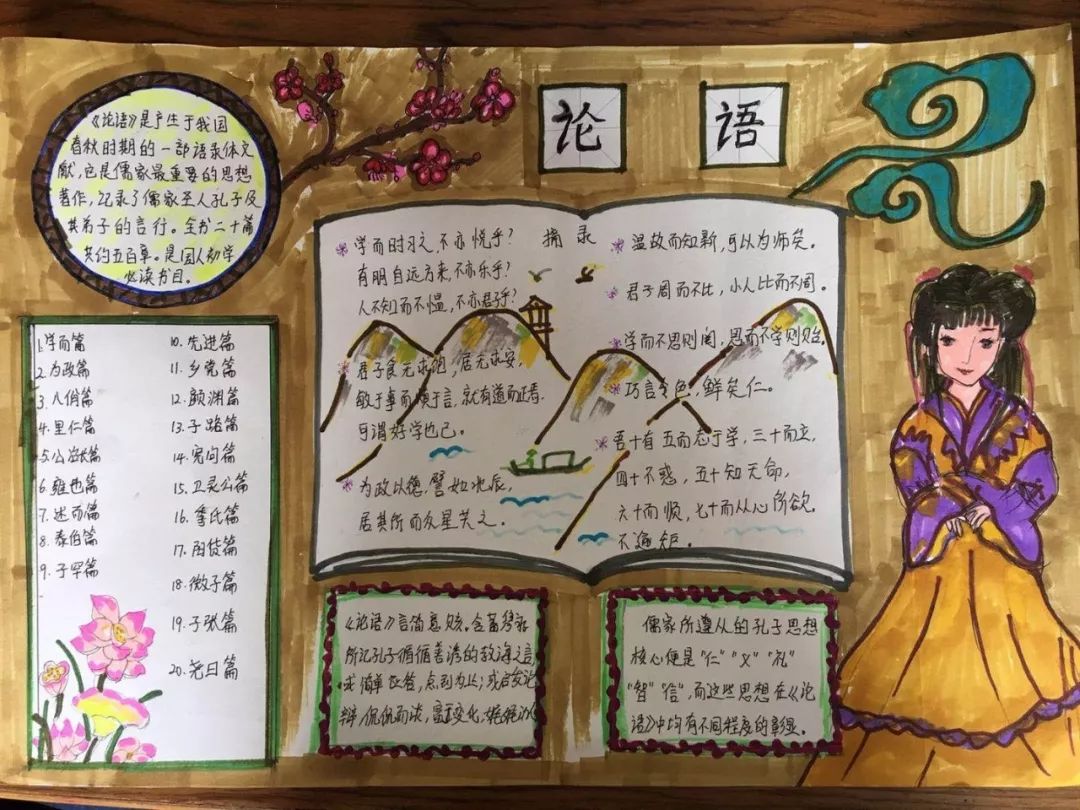 论语
《论语》是产生于我国
春秋时期的一部语录体文
献,它是儒家最重要的思想
著作,记录了儒家至人孔子及
其弟子的言行。全书二十篇
共约五百章。是国人幼学
必读书目。
1.学而篇
2.为政篇
3.八佾篇
4.里仁篇
5.公冶长篇
6.雍也篇
7.述而篇
8.泰伯篇
9.子罕篇
10.先进篇
11.乡党篇
12.颜渊篇
13.子路篇
14.宪问篇
15.卫灵公篇
16.季氏篇
17.阳货篇
18.微子篇
19.子张篇
20.尧曰篇
摘录
学而时习之,不亦悦乎?
有朋自远方来,不亦乐乎?
人不知而不愠,不亦君子乎?
君子食无求饱,居无求安,
敏于事而慎于言,就有道而正焉。
可谓好学也已。
为政以德,譬如北辰,
居其所而众星共之。
温故而知新,可以为师矣。
君子周而不比,小人比而不周。
学而不思则罔,思而不学则殆。
巧言令色,鲜矣仁。
吾十有五而志于学,三十而立,
四十不惑,五十知天命,
六十而顺,七十而从心所欲。
不逾矩。
《论语》言简意赅。含蓄隽永
所记孔子循循善诱的教诲之言,
或简单应答,点到为止;或启发论
辩,侃侃而谈,富于变化,娓娓动人
儒家所遵从的孔子思想
核心便是"仁""义""礼"
"智""信",而这些思想在《论
语》中均有不同程度的彰显。